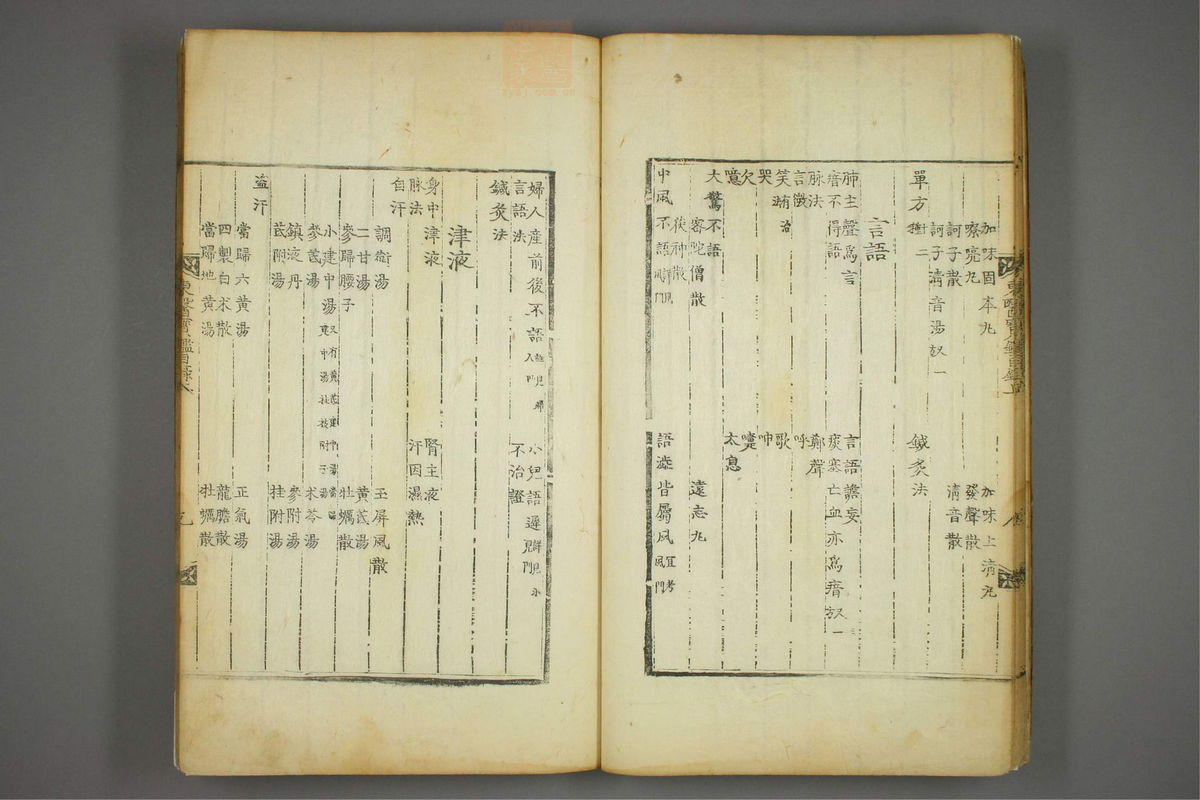 加味固本丸 加味上淸丸
嘹亮丸 發聲散
訶子散 淸音散
訶子淸音湯㕛一
單方 樹二 鍼灸法
言語
肺主聲爲言 言語譫妄
瘖不得語 痰塞亡血亦爲瘖㕛一
脉法 鄭聲
言微 呼
笑 有治 歌
哭 呻
欠 嚔
噫 太息
大驚不語
密陀僧散 遠志丸
茯神散
中風不語 詳見風門 語澁皆屬風 宜考風門
東醫寶鑑目錄上
八
婦人産前後不語 詳見婦人門 小兒語遲 詳見小兒門
言語法 不治證
鍼灸法
津液
身中津液 腎主液
脉法 汗因濕熱
自汗
調衛湯 玉屛風散
二甘湯 黃芪湯
參歸腰子 牡蠣散
小建中湯
參芪湯 朮苓湯
鎭液丹 參附湯
芪附湯 桂附湯
盜汗
當歸六黃湯 正氣湯
四製白朮散 龍膽散
當歸地黃湯 牡蠣散
東醫寶鑑目錄上
九